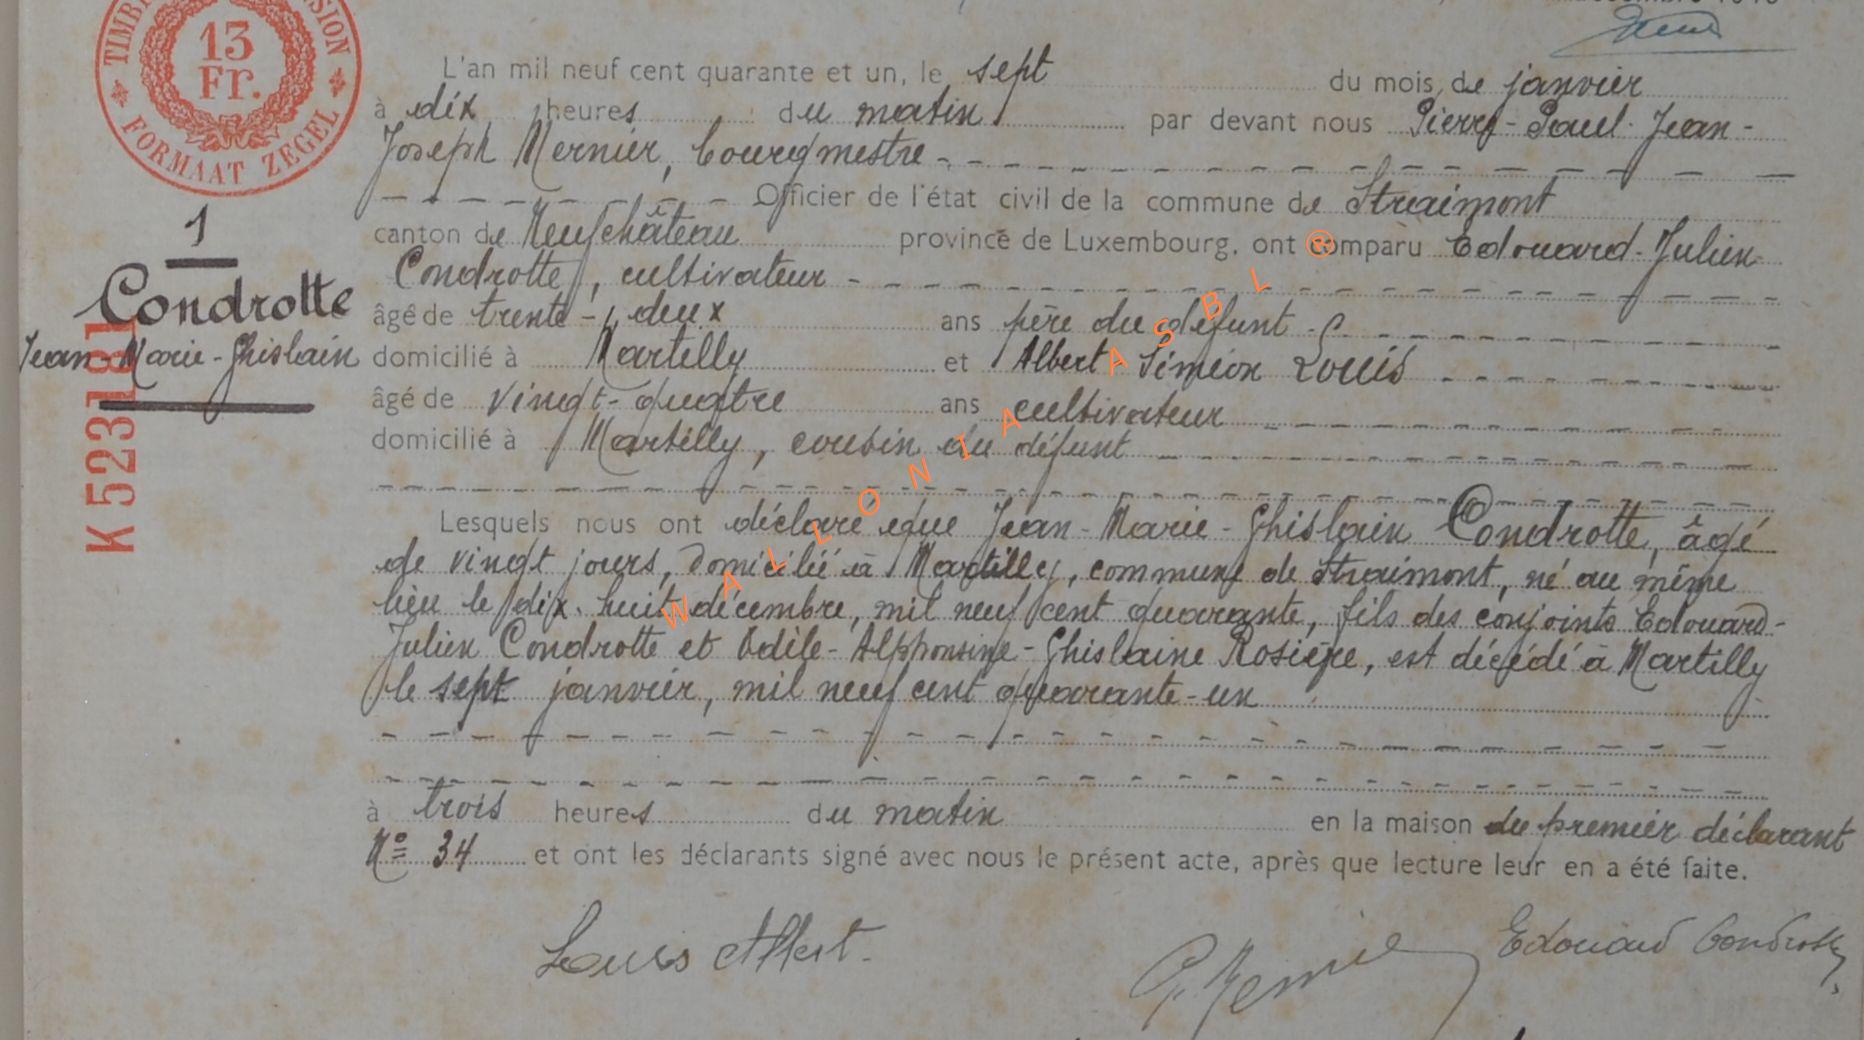 TIMBRE DIMENSION
13
Fr.
FORMAAT ZEGEL
1
Condrotte
Jean-Marie-Ghislain
K 523181
L'an mil neuf cent quarante et un, le sept du mois de janvier
à dix heures du matin par devant nous Pierre-Paul-Jean-
Joseph Mernier, bourgmestre
Officier de l'état civil de la commune de Straimont
canton de Neufchâteau province de Luxembourg, ont comparu Edouard-Julien
Condrotte, cultivateur
âgé de trente-deux ans père du défunt
domicilié à Martilly et Albert Siméon Louis
âgé de vingt-quatre ans cultivateur
domicilié à Martilly, cousin du défunt
Lesquels nous ont déclaré que Jean-Marie-Ghislain Condrotte, âgé
de vingt jours, domicilié à Martilly, commune de Straimont, né au même
lieu le dix-huit décembre, mil neuf cent quarante, fils des conjoints Edouard-
Julien Condrotte et Odile-Alphonsine-Ghislaine Rosière, est décédé à Martilly
le sept janvier, mil neuf cent quarante-un
à trois heures du matin en la maison du premier déclarant
N° 34 et ont les déclarants signé avec nous le présent acte, après que lecture leur en a été faite.
Louis Albert.
P. Mernier
Edouard Condrotte
WALLONIA ASBL ®